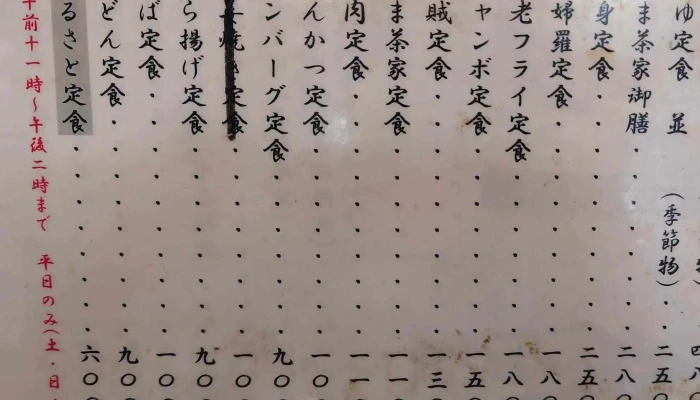 四八
物
ゆ定食 並(季節物)・・二五〇
ま茶家御膳・・・・・・・・二八〇
身定食・・・・・・・・・・二五〇
婦羅定食・・・・・・・・・一八〇
老フライ定食・・・・・・・一八〇
ャンボ定食・・・・・・・・一五〇
賊定食・・・・・・・・・・一三〇
ま茶家定食・・・・・・・・一一〇
肉定食・・・・・・・・・・一一〇
んかつ定食・・・・・・・・一〇〇
ンバーグ定食・・・・・・・九〇
定食・・・・・・・・一〇〇
ら揚げ定食・・・・・・・・九〇
ば定食・・・・・・・・・・一〇〇
どん定食・・・・・・・・・九〇
るさと定食・・・・・・・・六〇
午前十一時~午後二時まで 平日のみ(土・日